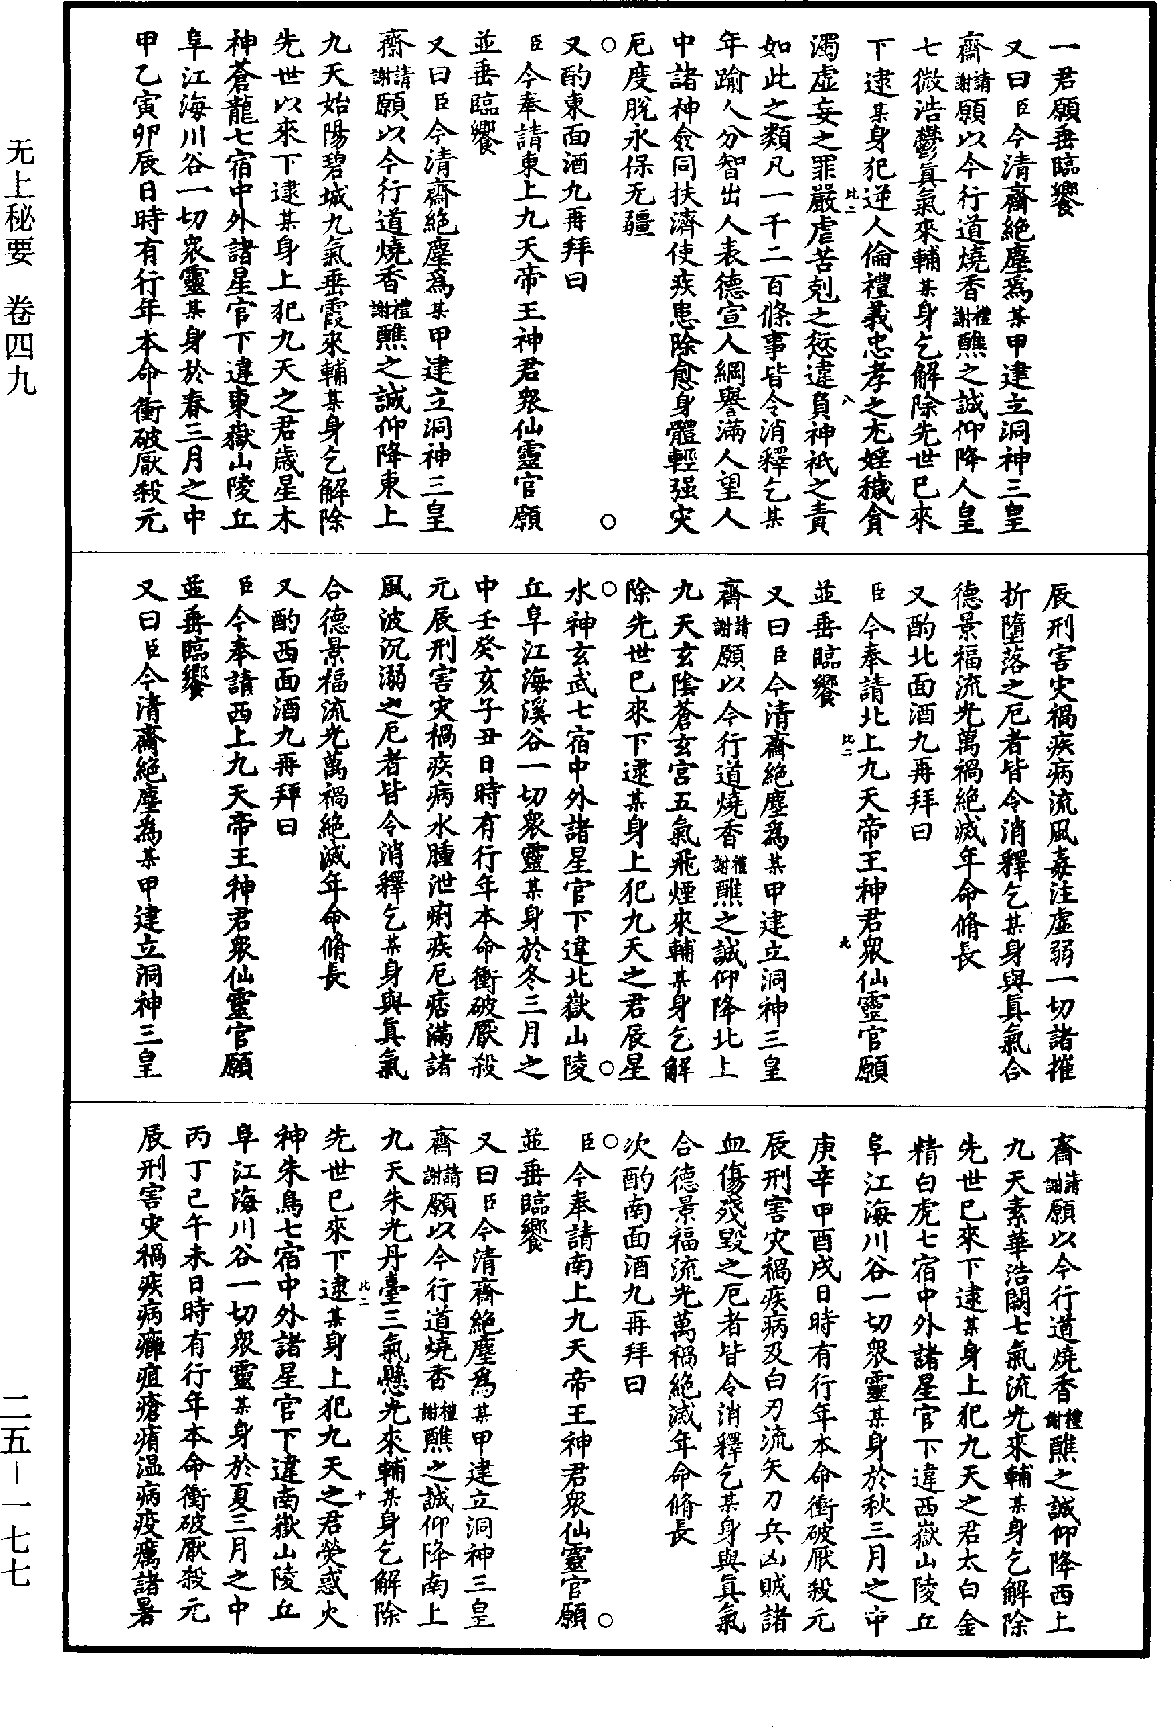 无上秘要 卷四九
一君願垂臨饗
又曰臣今清齋絕塵爲某甲建立洞神三皇
齋請謝願以今行道燒香禮謝醮之誠仰降人皇
七微浩鬱真氣來輔某身乞解除先世已來
下逮某身犯逆人倫禮義忠孝之尤婬穢貪
濁虛妄之罪嚴虐苦剋之愆違負神祇之責
如此之類凡一千二百條事皆令消釋乞某
年踰人分智出人表德宣人綱譽滿人望人
中諸神僉同扶濟使疾患除愈身體輕强灾
厄度脫永保无疆
又酌東面酒九再拜曰
臣今奉請東上九天帝王神君衆仙靈官願
並垂臨饗
又曰臣今清齋絕塵爲某甲建立洞神三皇
齋請謝願以今行道燒香禮謝醮之誠仰降東上
九天始陽碧城九氣垂霞來輔某身乞解除
先世以來下逮某身上犯九天之君歲星木
神蒼龍七宿中外諸星官下違東嶽山陵丘
阜江海川谷一切衆靈某身於春三月之中
甲乙寅卯辰日時有行年本命衝破厭殺元
辰刑害灾禍疾病流風毒注虛弱一切諸摧
折墮落之厄者皆令消釋乞某身與真氣合
德景福流光萬禍絕滅年命脩長
又酌北面酒九再拜曰
臣今奉請北上九天帝王神君衆仙靈官願
並垂臨饗
又曰臣今清齋絕塵爲某甲建立洞神三皇
齋請謝願以今行道燒香禮謝醮之誠仰降北上
九天玄陰蒼玄宮五氣飛煙來輔某身乞解
除先世已來下逮某身上犯九天之君辰星
水神玄武七宿中外諸星官下違北嶽山陵
丘阜江海溪谷一切衆靈某身於冬三月之
中壬癸亥子丑日時有行年本命衝破厭殺
元辰刑害灾禍疾病水腫泄痢疾厄痞滿諸
風波沉溺之厄者皆令消釋乞某身與真氣
合德景福流光萬禍絕滅年命脩長
又酌西面酒九再拜曰
臣今奉請西上九天帝王神君衆仙靈官願
並垂臨饗
又曰臣今清齋絕塵爲某甲建立洞神三皇
齋請謝願以今行道燒香禮謝醮之誠仰降西上
九天素華浩闕七氣流光來輔某身乞解除
先世已來下逮某身上犯九天之君太白金
精白虎七宿中外諸星官下違西嶽山陵丘
阜江海川谷一切衆靈某身於秋三月之中
庚辛申酉戌日時有行年本命衝破厭殺元
辰刑害灾禍疾病及白刃流矢刀兵凶賊諸
血傷殘毀之厄者皆令消釋乞某身與真氣
合德景福流光萬禍絕滅年命脩長
次酌南面酒九再拜曰
臣今奉請南上九天帝王神君衆仙靈官願
並垂臨饗
又曰臣今清齋絕塵爲某甲建立洞神三皇
齋請謝願以今行道燒香禮謝醮之誠仰降南上
九天朱光丹臺三氣懸光來輔某身乞解除
先世已來下逮某身上犯九天之君熒惑火
神朱鳥七宿中外諸星官下違南嶽山陵丘
阜江海川谷一切衆靈某身於夏三月之中
丙丁巳午未日時有行年本命衝破厭殺元
辰刑害灾禍疾病癰疽瘡痏温病疫癘諸暑
二五－一七七